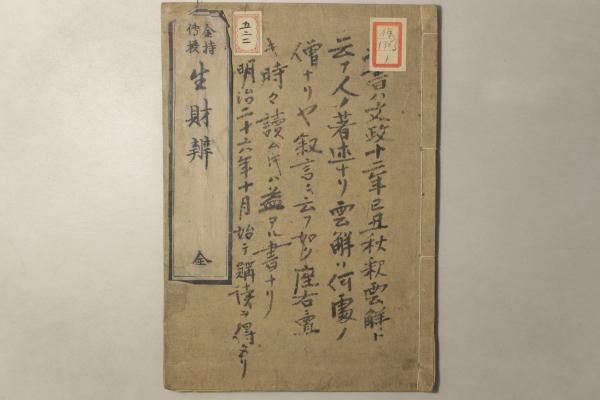 書ハ文政十二年己丑秋釈雲解ト
云フ人ノ著述ナリ雲解ハ何處ノ
僧ナリヤ叙言ニ云フ如ク座右ニ置
キ時々讀ム時ハ益アル書ナリ
明治二十六年十月始テ購讀ヲ得タリ
金持
傳授
生財辨
全
五二二
1